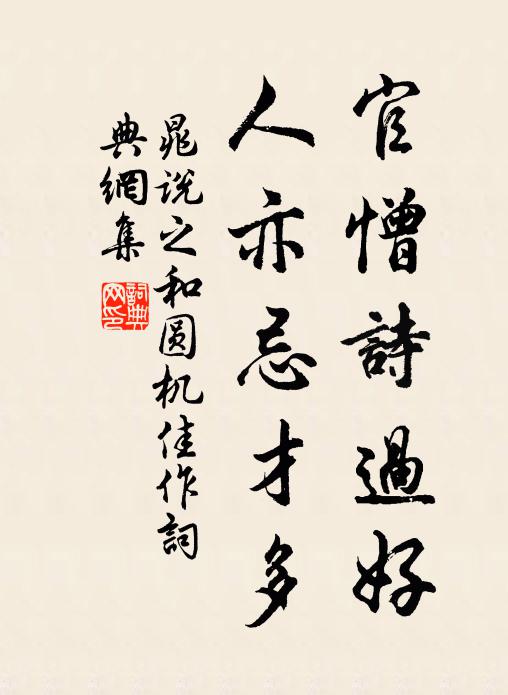 官憎詩過好
人亦忌才多
晁說之和圆机佳作詞
典網集
詞典
网印